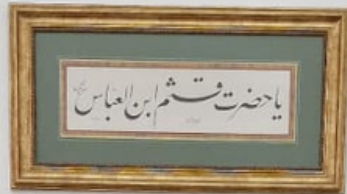 یا حضرت قثم ابن العباس